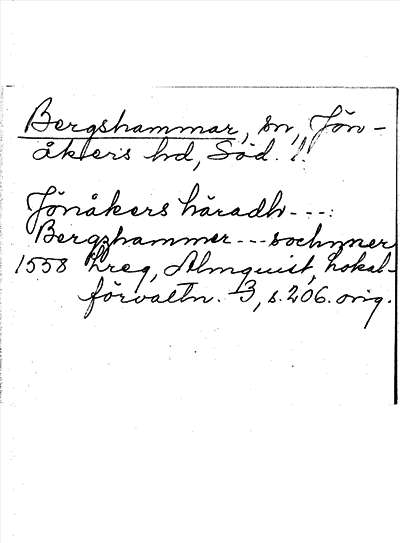 Bergshammar, sn, Jön-
åkers hd, Söd.
Jönåkers häradh ---:
Bergzhammer --- sochnner
1558 hreg, Almquist, Lokal-
förvaltn. 3, s. 206. orig.